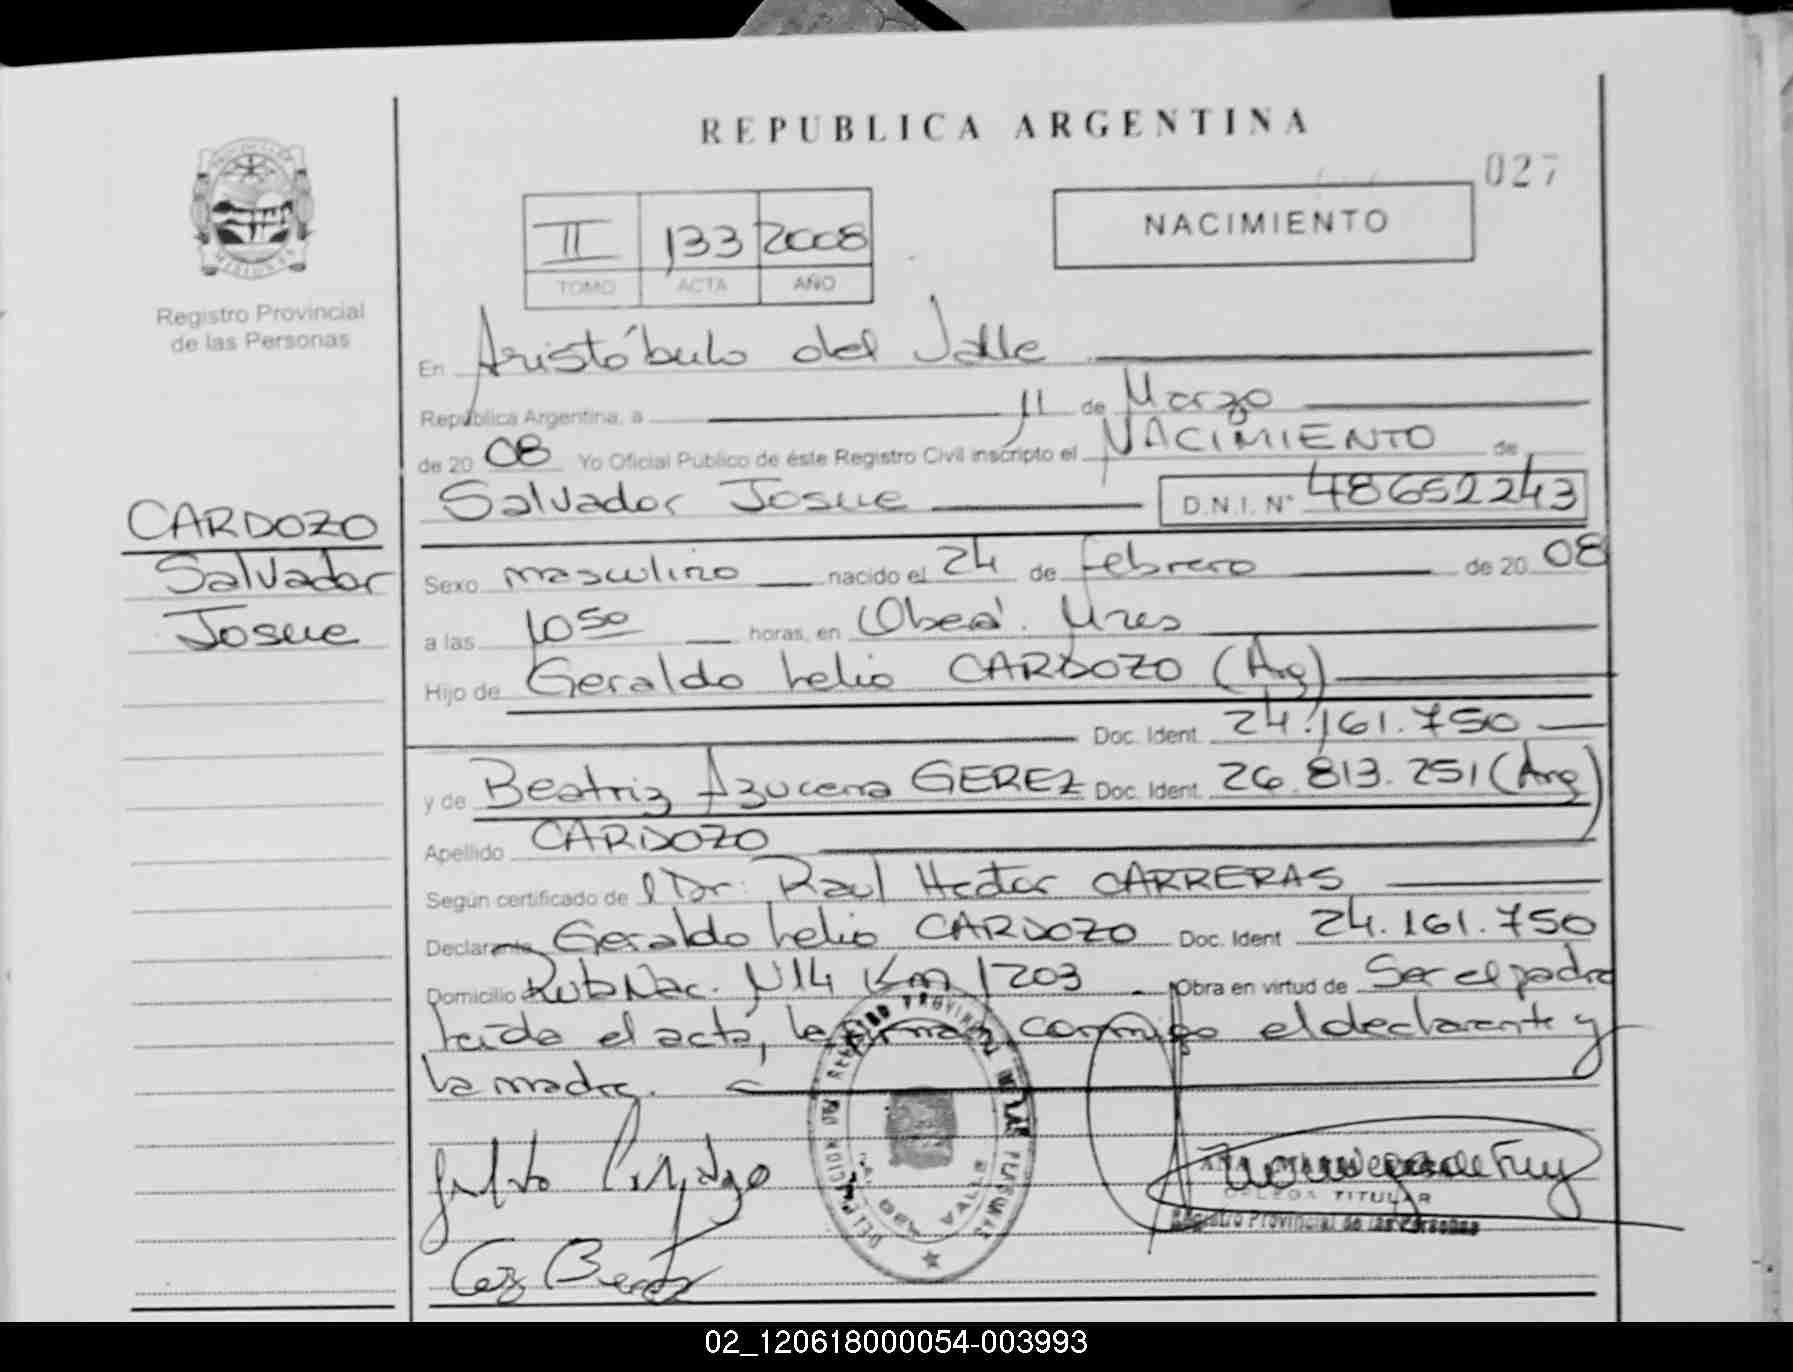 REPUBLICA ARGENTINA
027
II 133 2008
TOMO ACTA AÑO
NACIMIENTO
PROVINCIA DE
MISIONES
Registro Provincial
de las Personas
CARDOZO
Salvador
Josue
En Aristóbulo del Valle
República Argentina, a 11 de Marzo
de 2008 Yo Oficial Público de éste Registro Civil inscripto el NACIMIENTO de
Salvador Josue D.N.I. N° 48652243
Sexo masculino nacido el 24 de febrero de 2008
a las 10 50 horas, en Oberá. Mnes
Hijo de Geraldo Lelio CARDOZO (Arg)
Doc. Ident. 24.161.750
y de Beatriz Azucena GEREZ Doc. Ident. 26.813.251 (Arg)
Apellido CARDOZO
Según certificado del Dr. Raul Hector CARRERAS
Declarante Geraldo Lelio CARDOZO Doc. Ident 24.161.750
Domicilio Ruta Nac. N14 Km 1203 Obra en virtud de Ser el padre
Leida el acta, la firman conmigo el declarante y
la madre.
TITULAR
Registro Provincial de las Personas
02_120618000054-003993